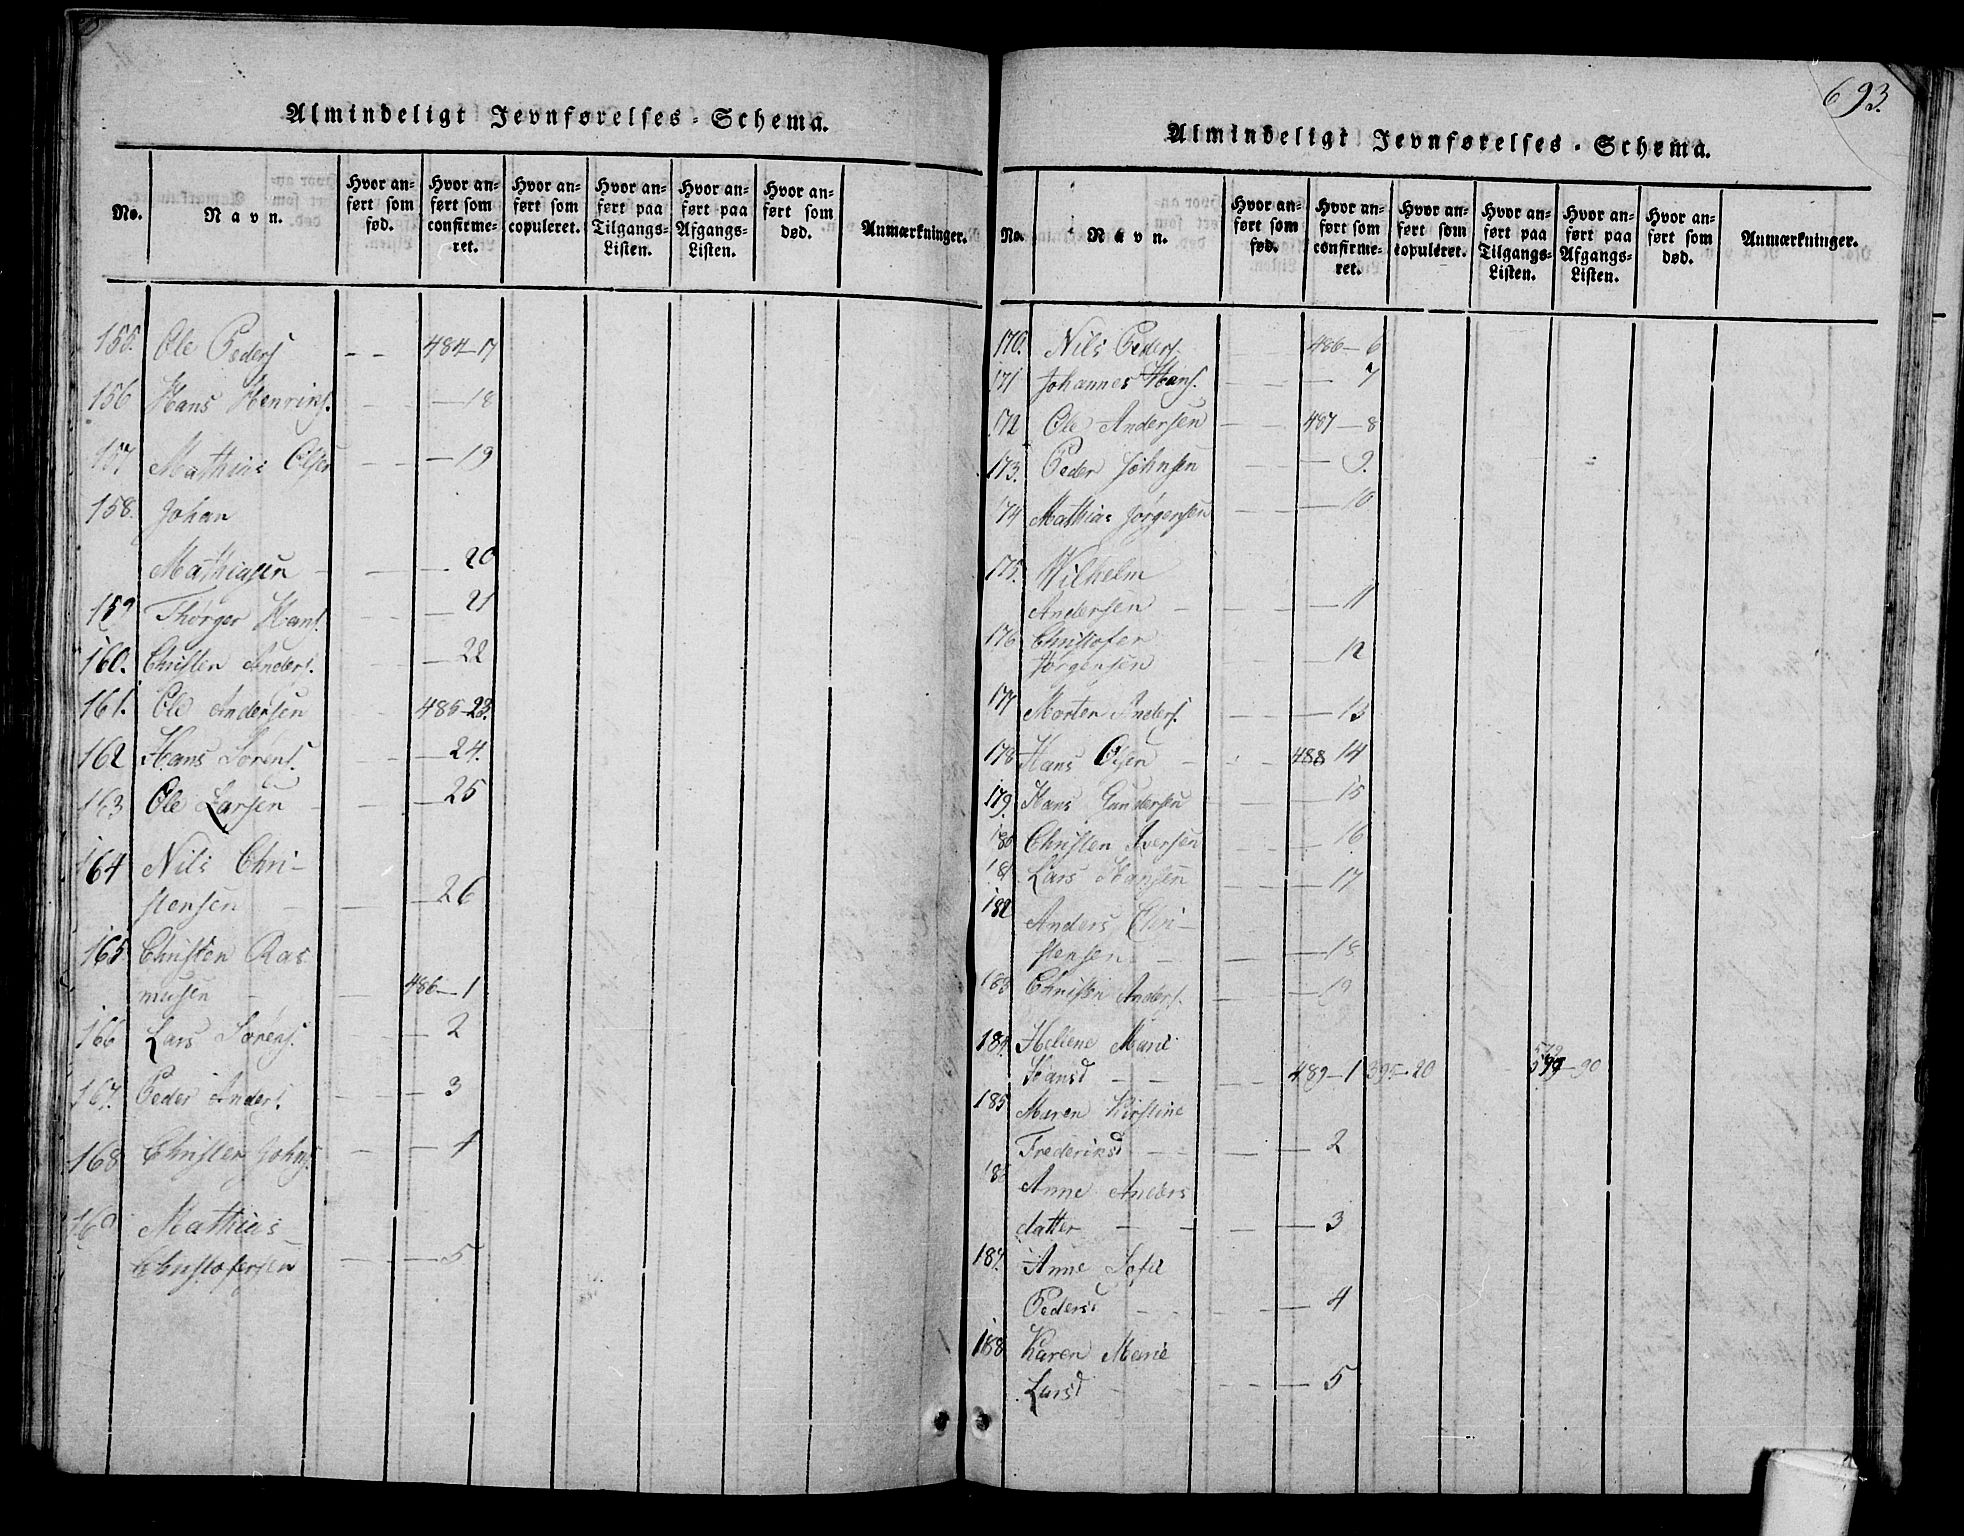 Almindeligt Jevnførelses-Schema.
No.
Navn.
Hvor an-
ført som
fød.
Hvor an-
ført som
confirme-
ret.
Hvor an-
ført som
copuleret.
Hvor an-
ført paa
Tilgangs-
Listen.
Hvor an-
ført paa
Afgangs-
Listen.
Hvor an-
ført som
død.
Anmærkninger.
155. Ole Peders - - 484-17
156 Hans Henriks. - - - 18
157 Mathias Olsen - - - 19
158. Johan
Mathiasen - - - 20
159 Thørger Hans. - - - 21
160. Christen Anders. - - - 22
161. Ole Andersen - - 485-23.
162 Hans Sørens. - - - 24.
163 Ole Larsen - - - 25
164 Nils Chri-
stensen - - - 26
165 Christen Ras
musen - - 486-1
166 Lars Sørens. - - - 2
167. Peder Anders. - - - 3
168 Christen Johns. - - - 4
169 Mathias
Christofersen - - - 5
693.
Almindeligt Jevnførelses-Schema.
No.
Navn.
Hvor an-
ført som
fød.
Hvor an-
ført som
confirme-
ret.
Hvor an-
ført som
copuleret.
Hvor an-
ført paa
Tilgangs-
Listen.
Hvor an-
ført paa
Afgangs-
Listen.
Hvor an-
ført som
død.
Anmærkninger.
170. Nils Peders. - - 486-6
171 Johannes Hans. - - - 7
172 Ole Andersen - - 487-8
173. Peder Johnsen - - - 9.
174 Mathias Jørgensen - - - 10
175. Wilhelm
Andersen - - - 11
176 Christofer
Jørgensen - 12
177 Morten Anders. - - - 13
178 Hans Olsen - - 488 14
179. Hans Gundersen - - 15
180 Christen Iversen - - - 16
181 Lars Hansen - - - 17
182 Anders Chri-
stensen - - - 18
183 Christen Anders. - - - 19
184. Hellene Marie
Hansd - - 489-1 395-20 -90
185 Maren Kirstine
Frederiksd - - - 2
186 Anne Anders
datter - - - 3
187. Anne Sofie
Pedersd - - - 4
188 Karen Marie
Larsd - - - 5